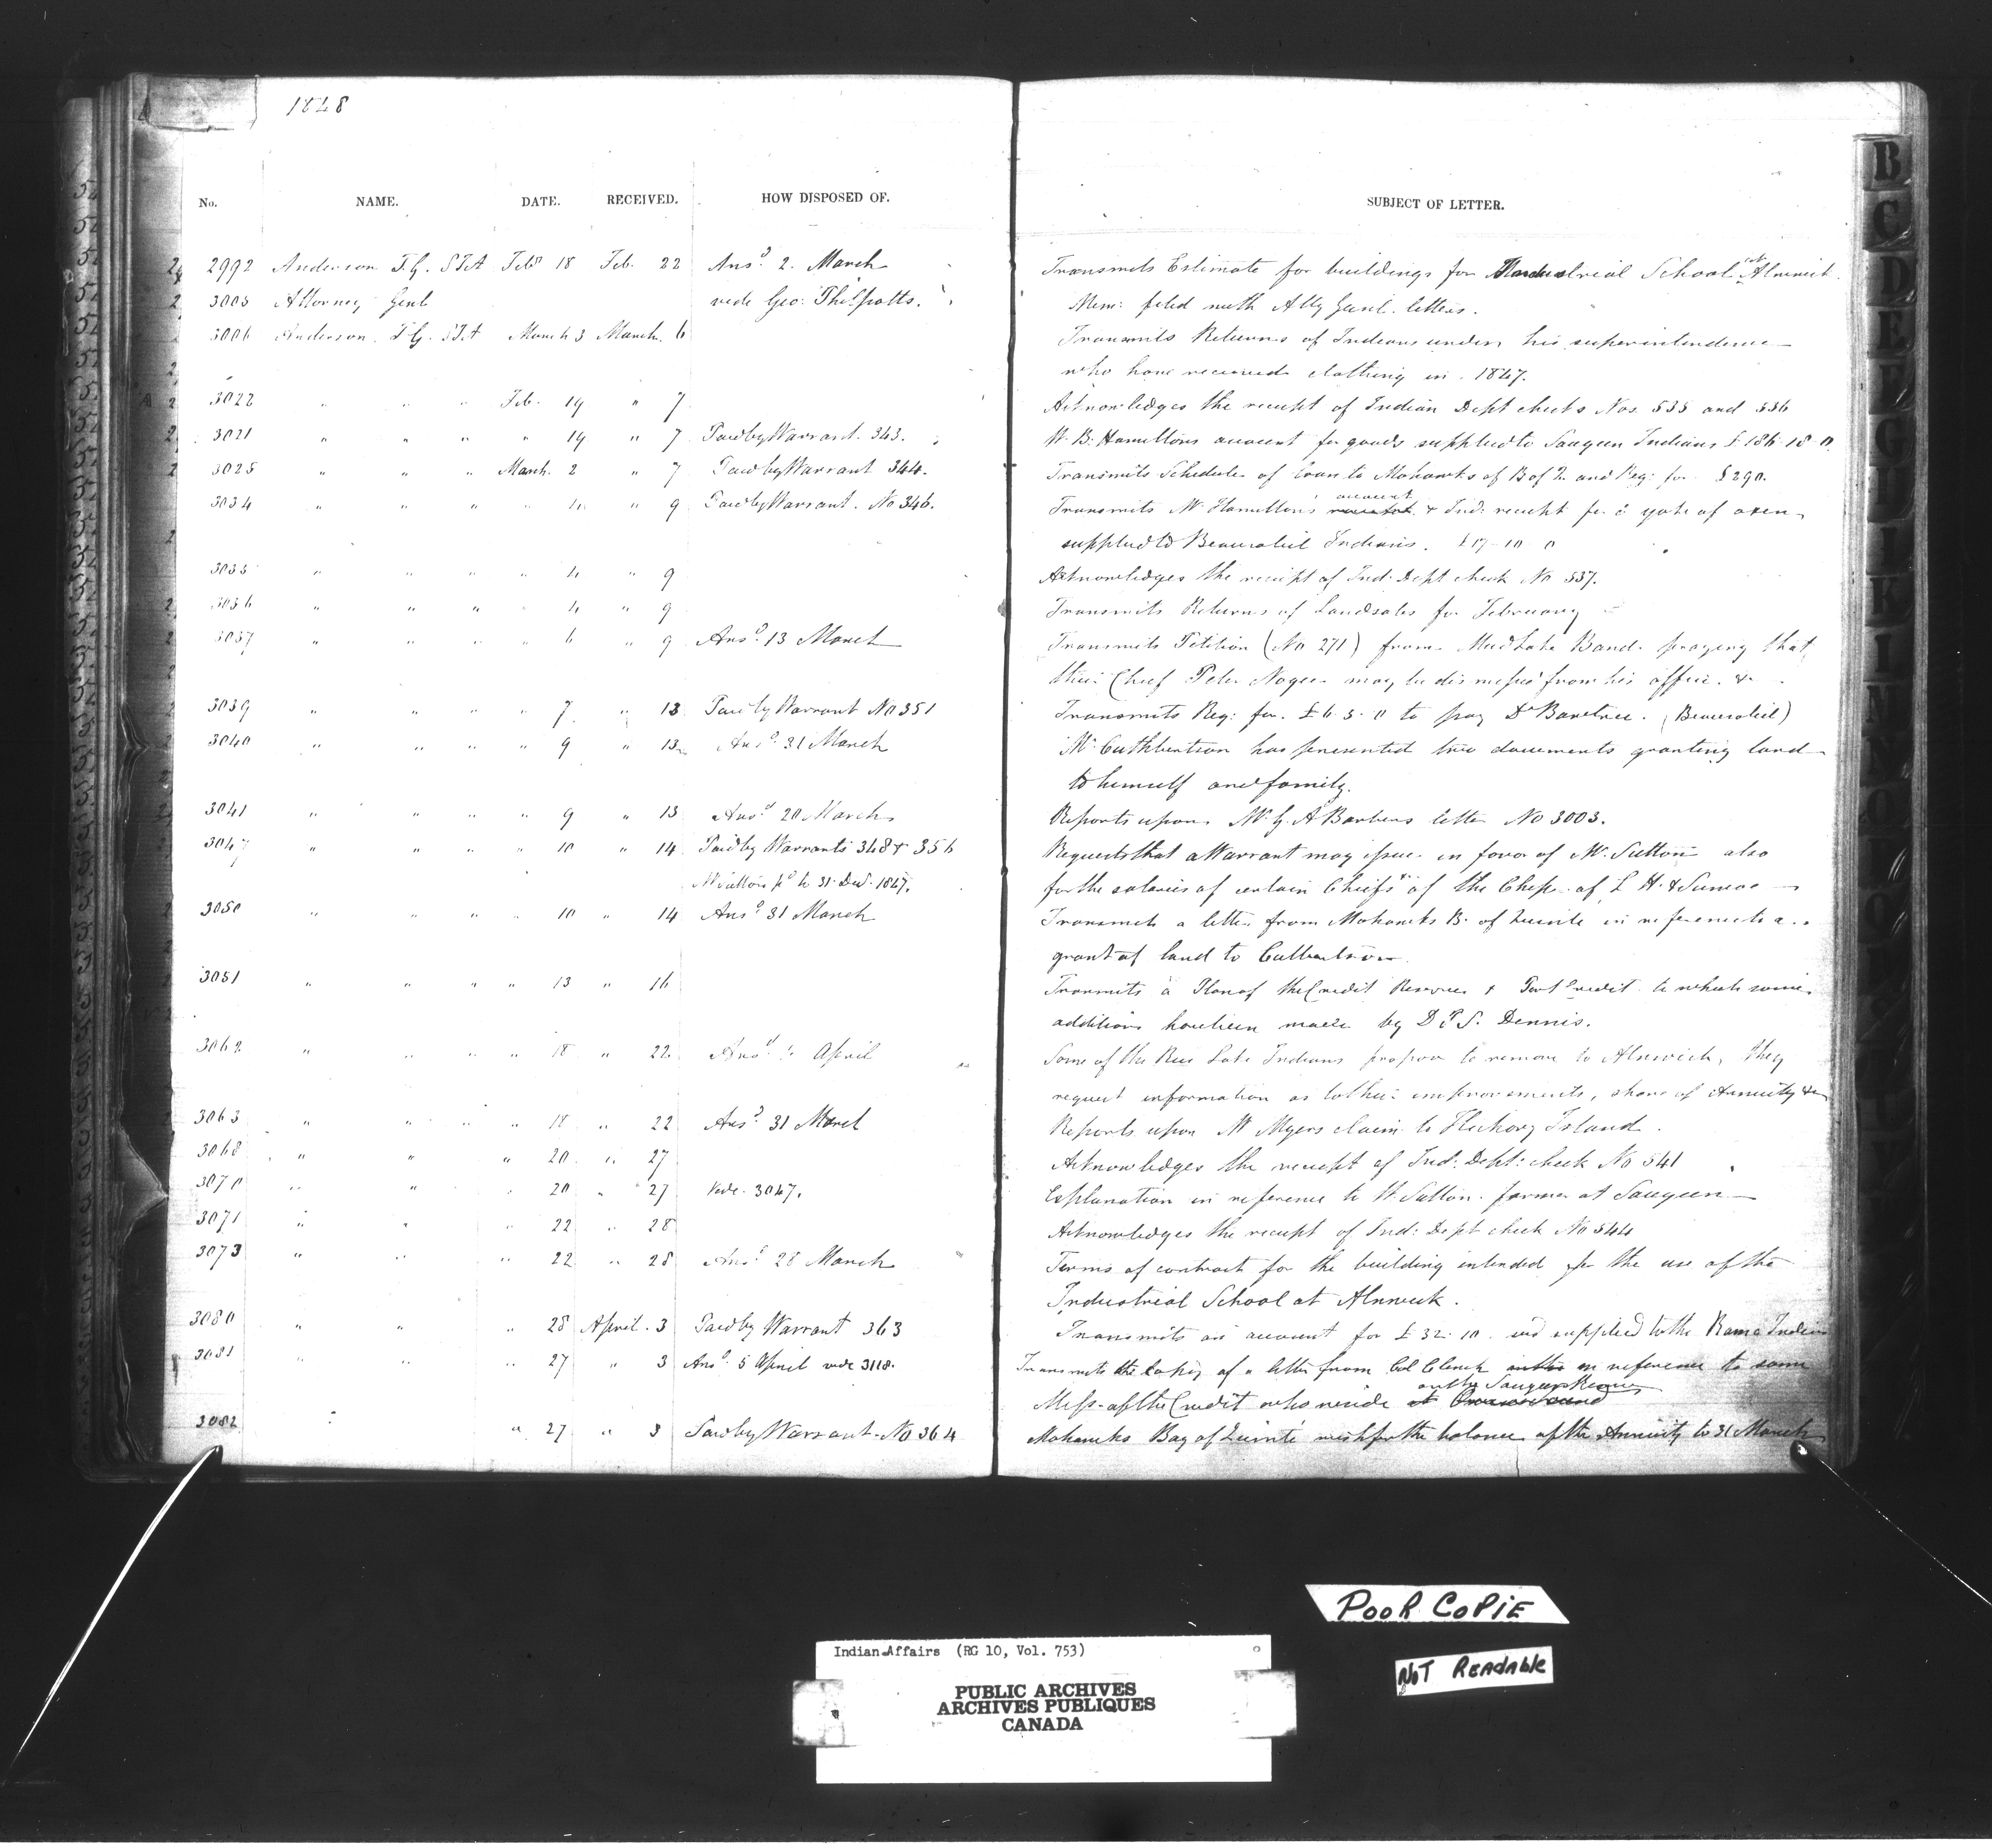 1848
No. NAME. DATE. RECEIVED. HOW DISPOSED OF. SUBJECT OF LETTER.
2992 Anderson T.G. STA Feb 18 Feb. 22 Ansd 2. March Transmits Estimate for buildings for Industrial School at Alnwick.
3005 Attorney Genl vide Geo: Mem: filed with Atty Genl. letters.
3006 Anderson. T.G. STA March 3 March. 6 Transmits Returns of Indians under his superintendence
who have received clothing in 1847.
3022 " " " Feb. 19 " 7 Acknowledges the receipt of Indian Dept checks Nos. 535 and 536
3021 " " " " 19 " 7 Paid by Warrant. 343. W. B. Hamiltons account for goods supplied to Saugeen Indians £186.18.0.
3025 " " " March. 2 " 7 Paid by Warrant 344. Transmits Schedule of Loan to Mohawks of B of Q. and Req: for £290.
3034 " " " " 4 " 9 Paid by Warrant. No 346. Transmits Mr Hamiltons account & Ind: receipt for a yoke of oxen
supplied to Beausoleil Indians. £17-10 0
3035 " " " " 4 " 9 Acknowledges the receipt of Ind: Dept check No 537.
3036 " " " " 4 " 9 Transmits Returns of Land sales for February
3037 " " " " 6 " 9 Ansd. 13 March Transmits Petition (No 271) from Mud Lake Band. praying that
their Chief Peter Nogee may be dismissed from his office. &
3039 " " " " 7 " 13 Paid by Warrant No 351 Transmits Req: for. £6.5.0 to pay Dr (Beausoleil)
3040 " " " " 9 " 13 Ansd 31 March Mr Cuthbertson has presented two documents granting land
to himself and family.
3041 " " " " 9 " 13 Ansd 20 March Reports upon Mr G. A Barbers letter No 3003.
3047 " " " " 10 " 14 Paid by Warrants 348 & 356 Requests that a Warrant may issue in favor of Mr. Sutton also
Mr Sutton pd to 31 Decr. 1847. for the salaries of certain Chiefs & of the Chipps. of L H. & Simcoe
3050 " " " " 10 " 14 Ansd 31 March Transmits a letter from Mohawks B. of Quinte in reference to a
grant of land to Culbertson.
3051 " " " " 13 " 16 Transmits a Plan of the Credit Reserve & Port Credit to which some
additions have been made by D P S. Dennis.
3062 " " " " 18 " 22 Ansd April Some of the Rice Lake Indians propose to remove to Alnwick, they
request information as to their improvements, share of Annuity &c
3063 " " " " 18 " 22 Ansd 31 March Reports upon Mr Myers claim to Hickory Island.
3068 " " " 20 " 27 Acknowledges the receipt of Ind: Dept: check No 541
3070 " " " 20 " 27 Vide. 3047. Explanation in reference to W. Sutton. farmer at Saugeen
3071 " " " 22 " 28 Acknowledges the receipt of Ind: Dept check No 544
3073 " " " 22 " 28 Ansd 28 March Terms of contract for the building intended for the use of the
Industrial School at Alnwick.
3080 " " " 28 April. 3 Paid by Warrant 363 Transmits an account for £32.10. supplied to the Rama Indians
3081 " " " 27 " 3 Ansd. 5 April vide 3118. Transmits the copy of a letter from Col Clench in reference to some
on the Saugeen Reserve
Miss. of the Credit who reside at Owen Sound
3082 " " 27 " 3 Paid by Warrant. No 364 Mohawks Bay of Quinté wish for the balance of the Annuity to 31 March
B
C
D
E
F
G
I
K
POOR COPIE
NOT READABLE
Indian Affairs (RG 10, Vol. 753)
PUBLIC ARCHIVES
ARCHIVES PUBLIQUES
CANADA